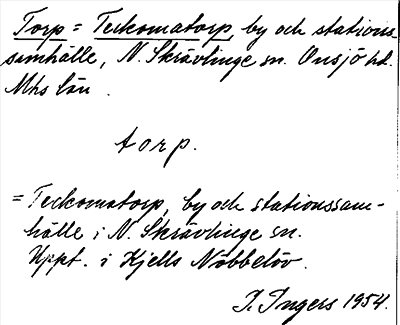 Torp = Teckomatorp, by och stations
samhälle, N. Skrävlinge sn. Onsjö hd.
Mhs län.
torp.
= Teckomatorp, by och stationssam-
hälle i N. Skrävlinge sn.
Uppt. i Kjells Nöbbelöv.
I. Ingers 1954.